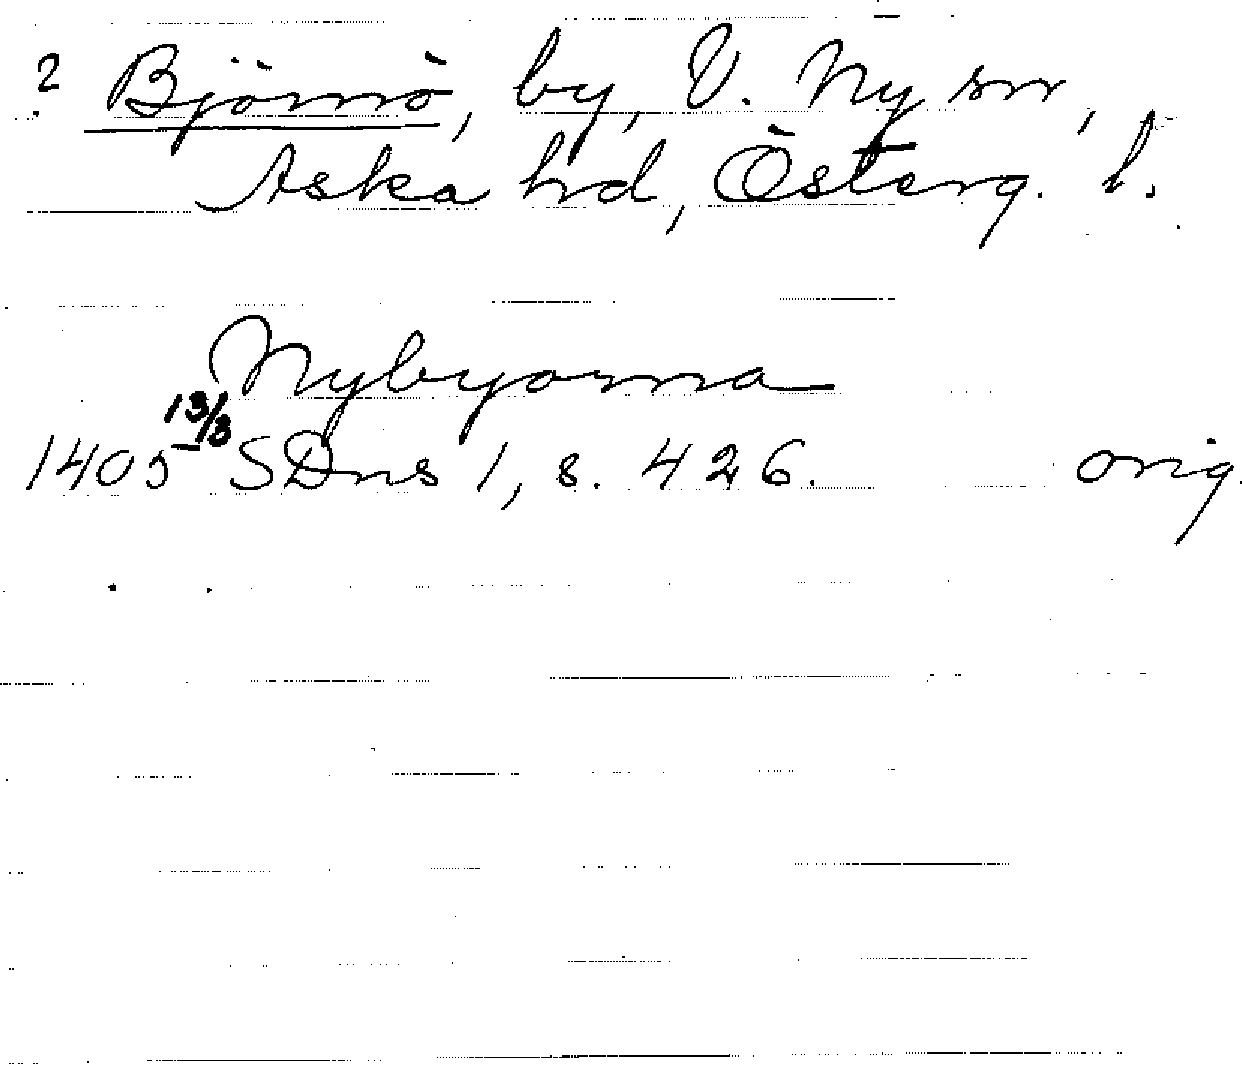 ? Björnö, by, V. Ny sn,
Aska hrd, Österg. l.
Nybyorna
1405 13/3 SDns 1, s. 426. orig.